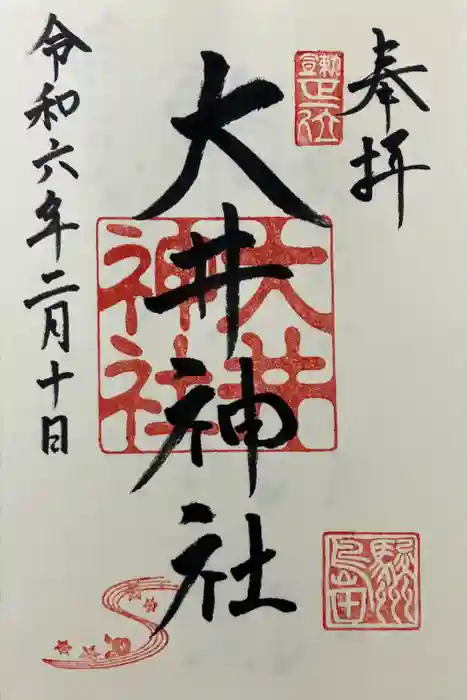 奉拝
勅宣正一位
大井神社
大井神社
駿州島田
令和六年二月十日